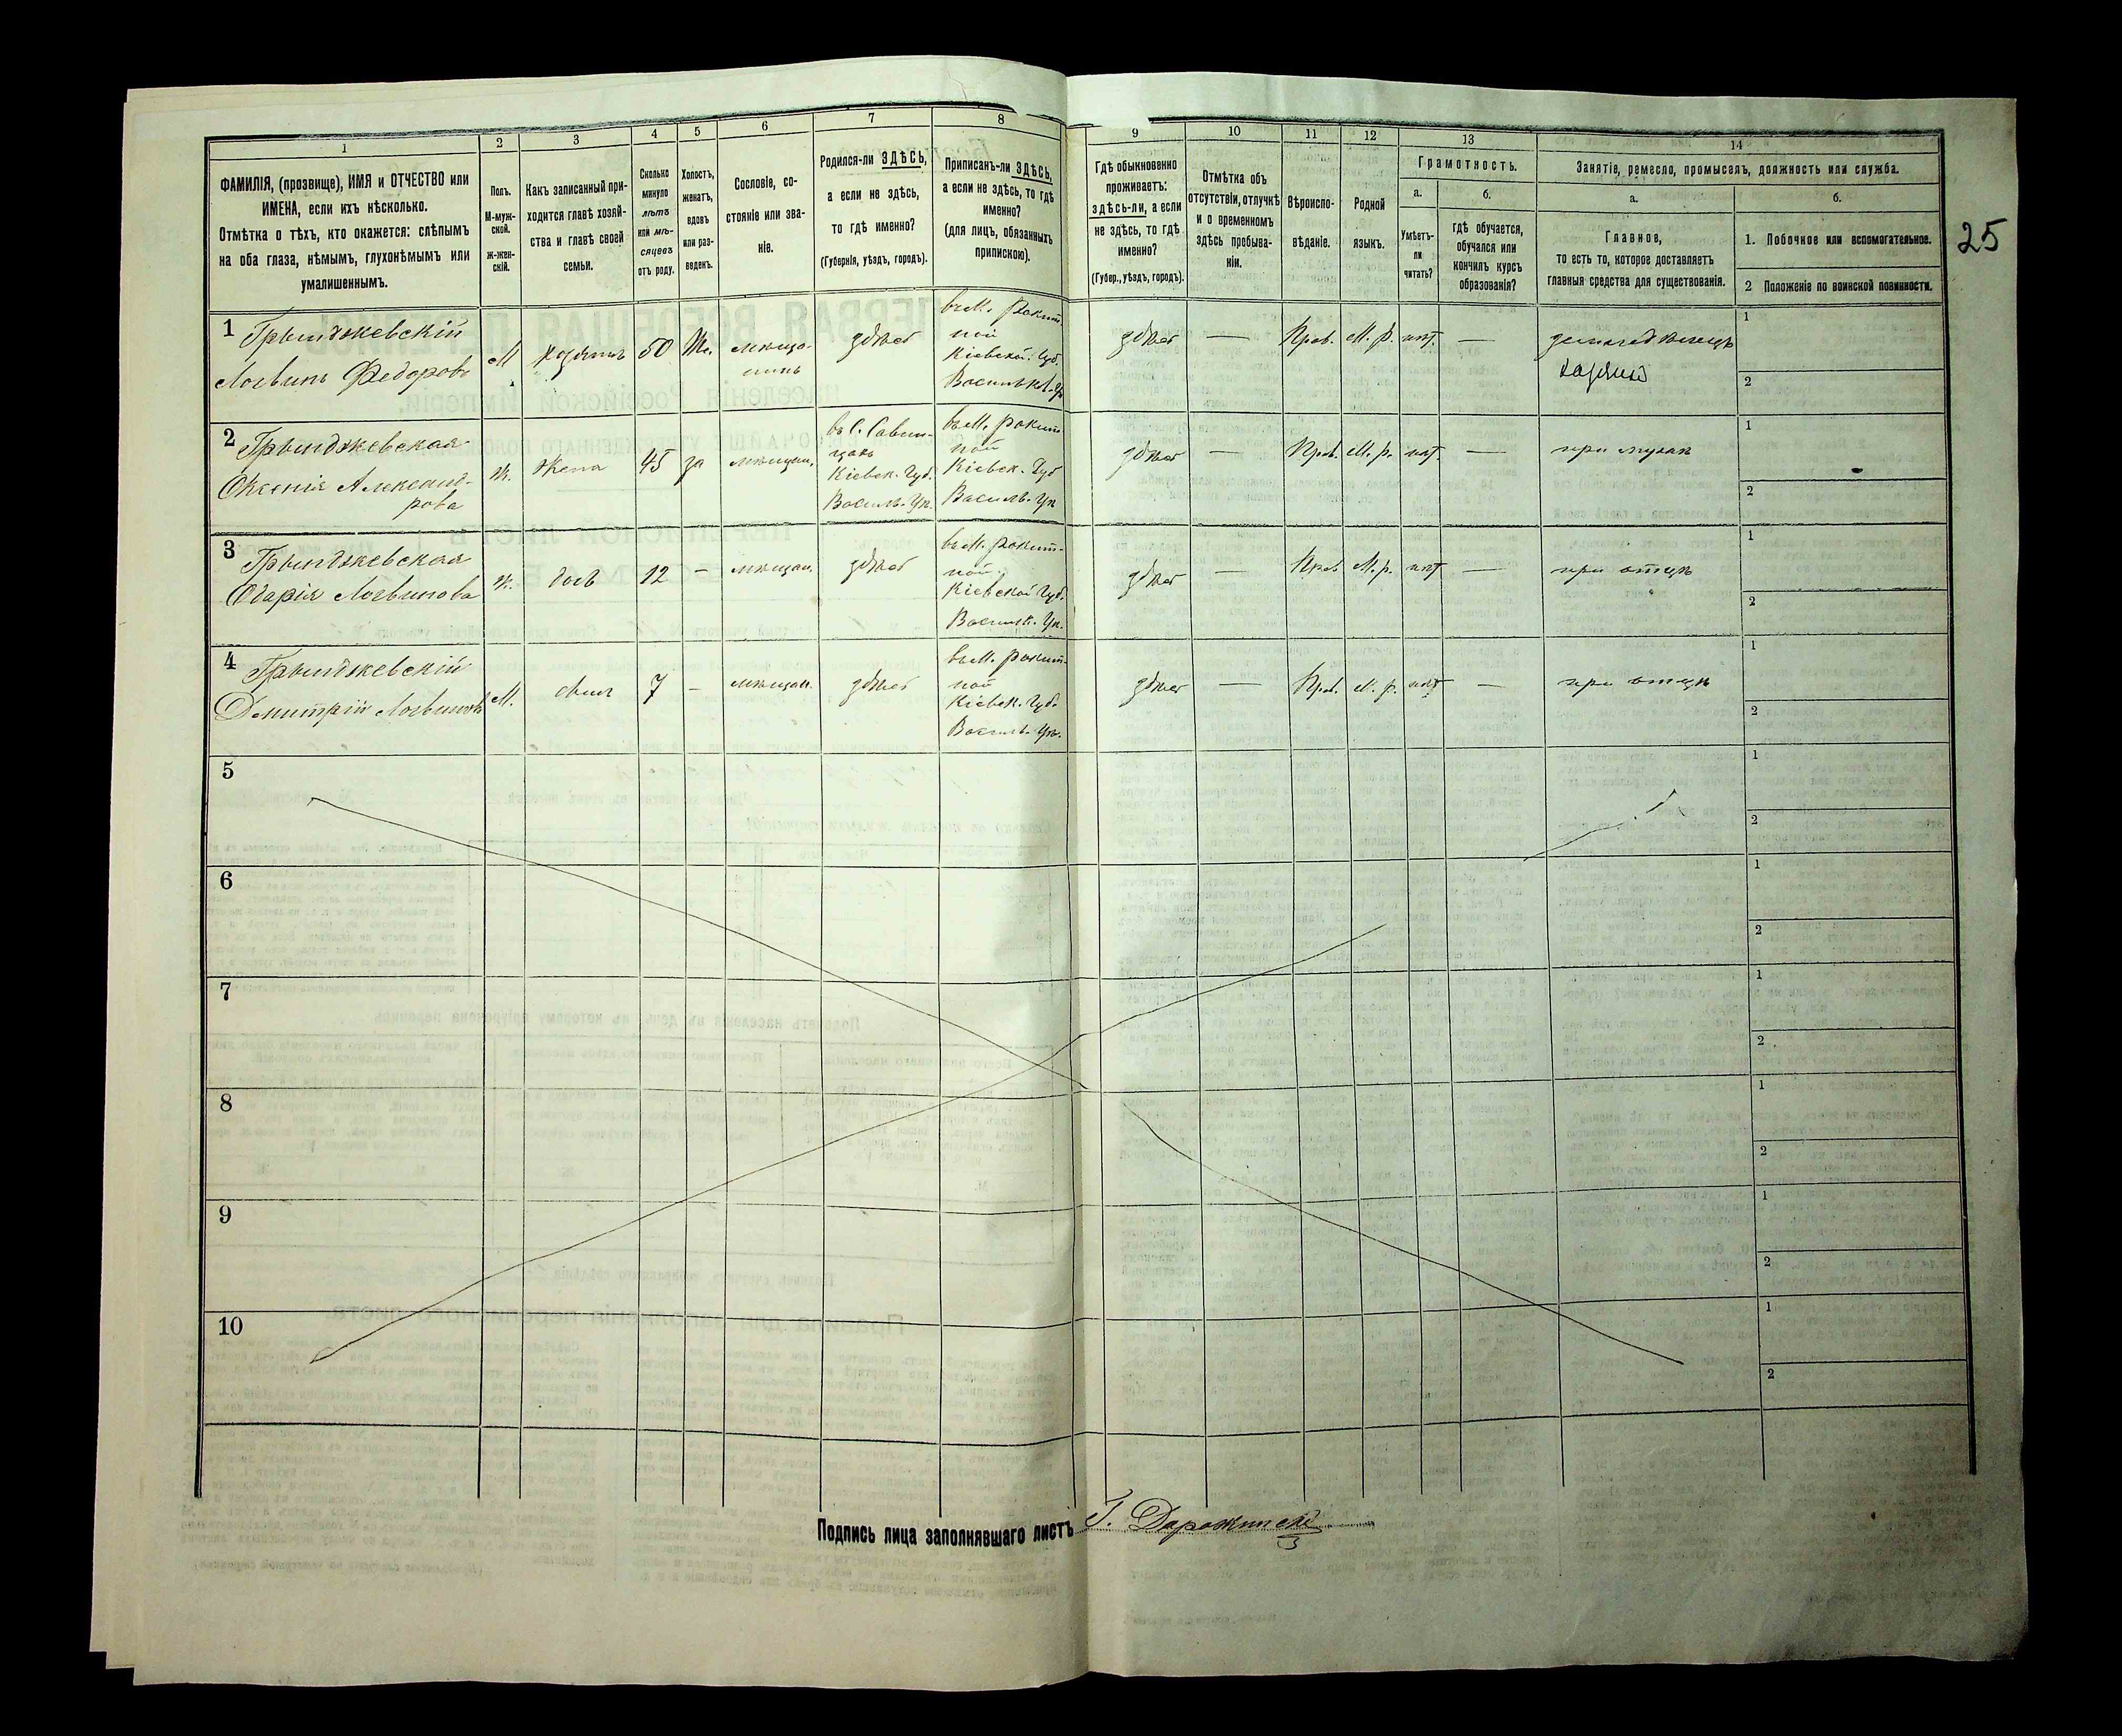 1
2
3
4
5
6
7
8
9
10
11
12
13
14
ФАМИЛІЯ, (прозвище), ИМЯ и ОТЧЕСТВО или
ИМЕНА, если ихъ нѣсколько.
Отмѣтка о тѣхъ, кто окажется: слѣпымъ
на оба глаза, нѣмымъ, глухонѣмымъ или
умалишеннымъ.
Полъ.
М-муж-
ской.
ж-жен-
скій.
Какъ записанный при-
ходится главѣ хозяй-
ства и главѣ своей
семьи.
Сколько
минуло
лѣтъ
или мѣ-
сяцевъ
отъ роду.
Холостъ,
женатъ,
вдовъ
или раз-
веденъ.
Сословіе, со-
стояніе или зва-
ніе.
Родился-ли ЗДѢСЬ,
а если не здѣсь,
то гдѣ именно?
(Губернія, уѣздъ, городъ).
Приписанъ-ли ЗДѢСЬ,
а если не здѣсь, то гдѣ
именно?
(для лицъ, обязанныхъ
припискою).
Гдѣ обыкновенно
проживаетъ:
здѣсь-ли, а если
не здѣсь, то гдѣ
именно?
(Губер., уѣздъ, городъ).
Отмѣтка объ
отсутствіи, отлучкѣ
и о временномъ
здѣсь пребыва-
ніи.
Вѣроиспо-
вѣданіе.
Родной
языкъ.
Грамотность.
а.
б.
Умѣетъ-
ли
читать?
гдѣ обучается,
обучался или
кончилъ курсъ
образованія?
Занятіе, ремесло, промыселъ, должность или служба.
а.
б.
Главное,
то есть то, которое доставляетъ
главныя средства для существованія.
1. Побочное или вспомогательное.
2 Положеніе по воинской повинности.
25
1 Грынджевскій
Логвинъ Федоровъ
М
хозяинъ
50
Же.
мѣща-
нинъ
здѣсь
въ М. Рокит-
ной
Кіевской Губ.
Васильков. Уѣ
здѣсь
—
Прав.
М. р.
нѣт.
—
земледѣлецъ
хозяинъ
1
2
2 Грынджевская
Оксенія Александ-
рова
Ж.
жена
45
за
мѣщан.
въ С. Савин-
цахъ
Кіевск. Губ.
Василь. Уѣ.
въ М. Рокит-
ной
Кіевск. Губ
Василь. Уѣ
здѣсь
—
Прав.
М. р.
нѣт.
—
при мужѣ
1
2
3 Грынджевская
Одарія Логвинова
Ж.
дочь
12
—
мѣщан.
здѣсь
въ М. Рокит-
ной
Кіевской Губ.
Васильк. Уѣ.
здѣсь
—
Прав
М. р.
нѣт
—
при отцѣ
1
2
4 Грынджевскій
Дмитрій Логвиновъ
М.
сынъ
7
—
мѣщан.
здѣсь
въ М. Рокит-
ной
Кіевск. Губ.
Василь. Уѣ.
здѣсь
—
Прав.
М. р.
нѣт
—
при отцѣ
1
2
5
1
2
6
1
2
7
1
2
8
1
2
9
1
2
10
1
2
Подпись лица заполнявшаго листъ Г. Дарожинскій